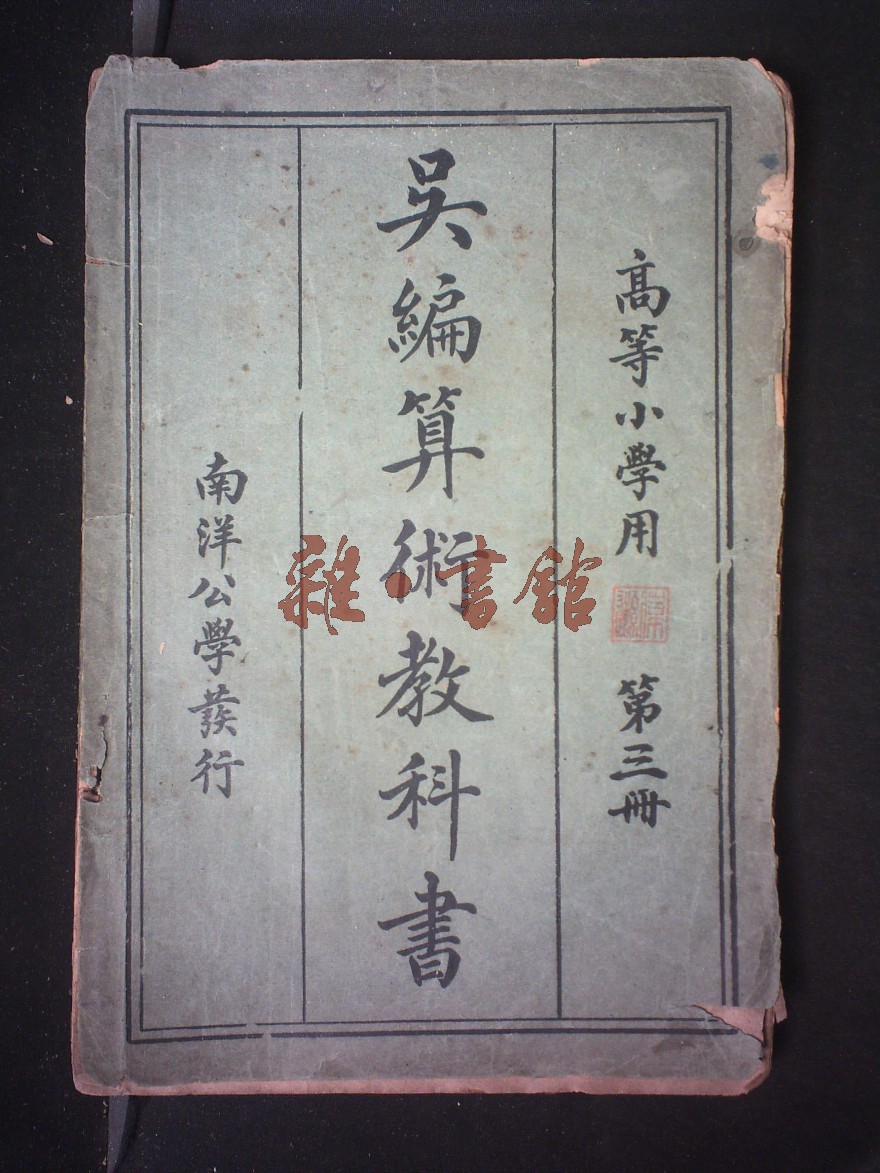 高等小學用 第三冊
吳編算術教科書
南洋公學發行
雜·書館